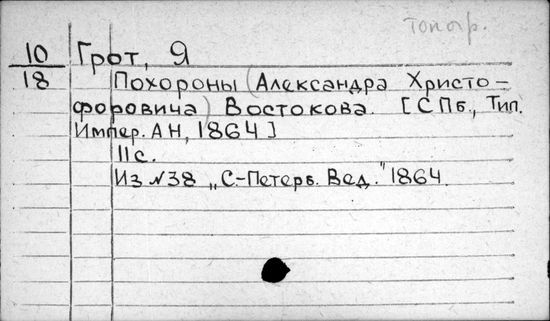 топогр.
10 Грот, Я
18 Похороны (Александра Христо-
форовича) Востокова. [СПб., Тип.
Импер. АН, 1864]
11 с.
Из №38 „С-Петерб. Вед." 1864.